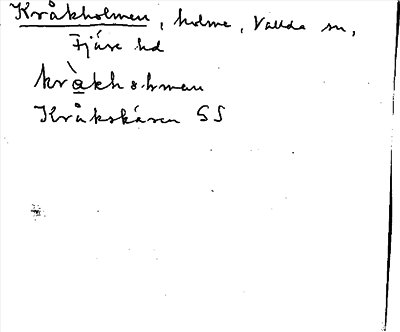 Kråkholmen, holme, Vallda sn,
Fjäre hd
kràkhɷ·lmən
Kråkskären SS